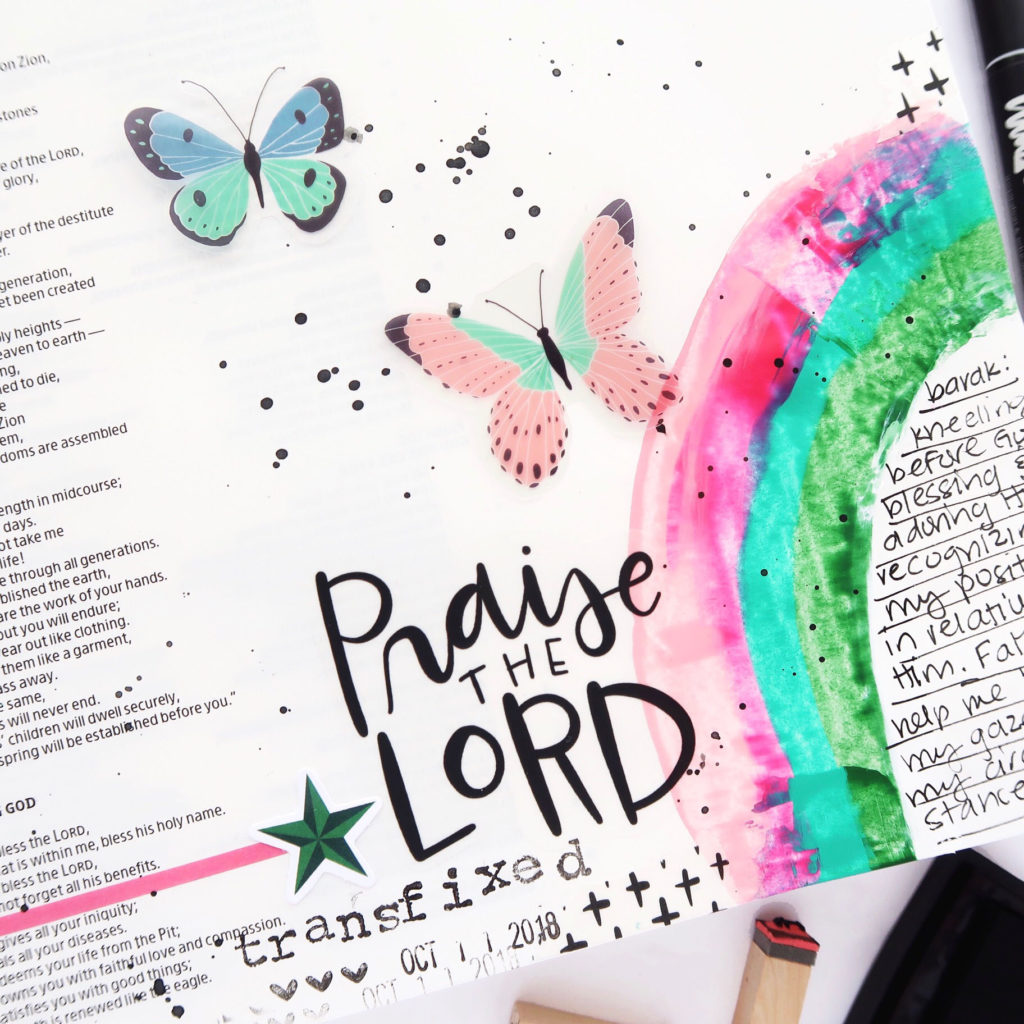 on Zion,
stones
e of the LORD,
glory,
of the destitute
generation,
et been created
heights —
eaven to earth—
to die,
Zion
are assembled
in midcourse;
days.
ot take me
life!
through all generations.
the earth,
are the work of your hands.
but you will endure;
ear out like clothing.
them like a garment,
ass away.
same,
will never end.
children will dwell securely,
spring will be established before you."
GOD
bless the LORD,
at is within me, bless his holy name.
bless the LORD,
not forget all his benefits.
gives all your iniquity;
als all your diseases.
deems your life from the Pit;
owns you with faithful love and compassion.
satisfies you with good things;
is renewed like the eagle.
Praise
THE
LORD
transfixed
OCT 11 2018
OCT 11 2018
barak:
kneeling
before
blessing
adoring
recognizin
my posit
in relativ
Him. Fat
help me
my gaze
my circ
stance